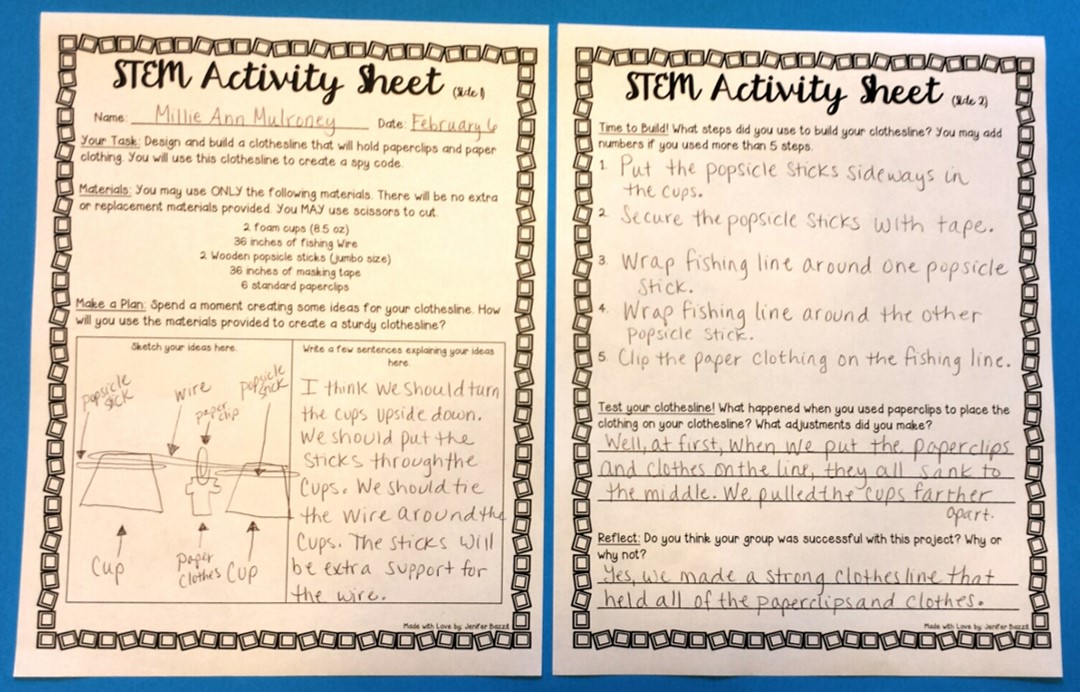 STEM Activity Sheet (Side 1)
Name: Millie Ann Mulroney Date: February 6
Your Task: Design and build a clothesline that will hold paperclips and paper
clothing. You will use this clothesline to create a spy code.
Materials: You may use ONLY the following materials. There will be no extra
or replacement materials provided. You MAY use scissors to cut.
2 foam cups (8.5 oz)
36 inches of fishing wire
2 Wooden popsicle sticks (jumbo size)
36 inches of masking tape
6 standard paperclips
Make a Plan: Spend a moment creating some ideas for your clothesline. How
will you use the materials provided to create a sturdy clothesline?
Sketch your ideas here.
popsicle
stick
wire
paper
clip
popsicle
stick
Cup
Paper
Clothes
Cup
Write a few sentences explaining your ideas
here.
I think we should turn
the cups upside down.
We should put the
sticks through the
cups. We should tie
the wire around the
Cups. The sticks will
be extra support for
the wire.
Made with Love by: Jenifer Bazzit
STEM Activity Sheet (Side 2)
Time to Build! What steps did you use to build your clothesline? You may add
numbers if you used more than 5 steps.
1. Put the popsicle sticks sideways in
the cups.
2. Secure the popsicle sticks with tape.
3. Wrap fishing line around one popsicle
stick.
4. Wrap fishing line around the other
popsicle stick.
5. Clip the paper clothing on the fishing line.
Test your clothesline! What happened when you used paperclips to place the
clothing on your clothesline? What adjustments did you make?
Well, at first, when we put the paperclips
and clothes on the line, they all sank to
the middle. We pulled the cups farther
apart.
Reflect: Do you think your group was successful with this project? Why or
why not?
Yes, we made a strong clothesline that
held all of the paperclips and clothes.
Made with Love by: Jenifer Bazzit